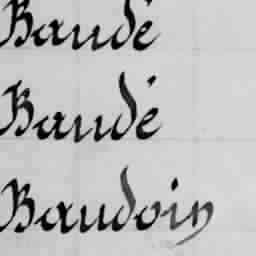 Baudé
Baudé
Baudoin